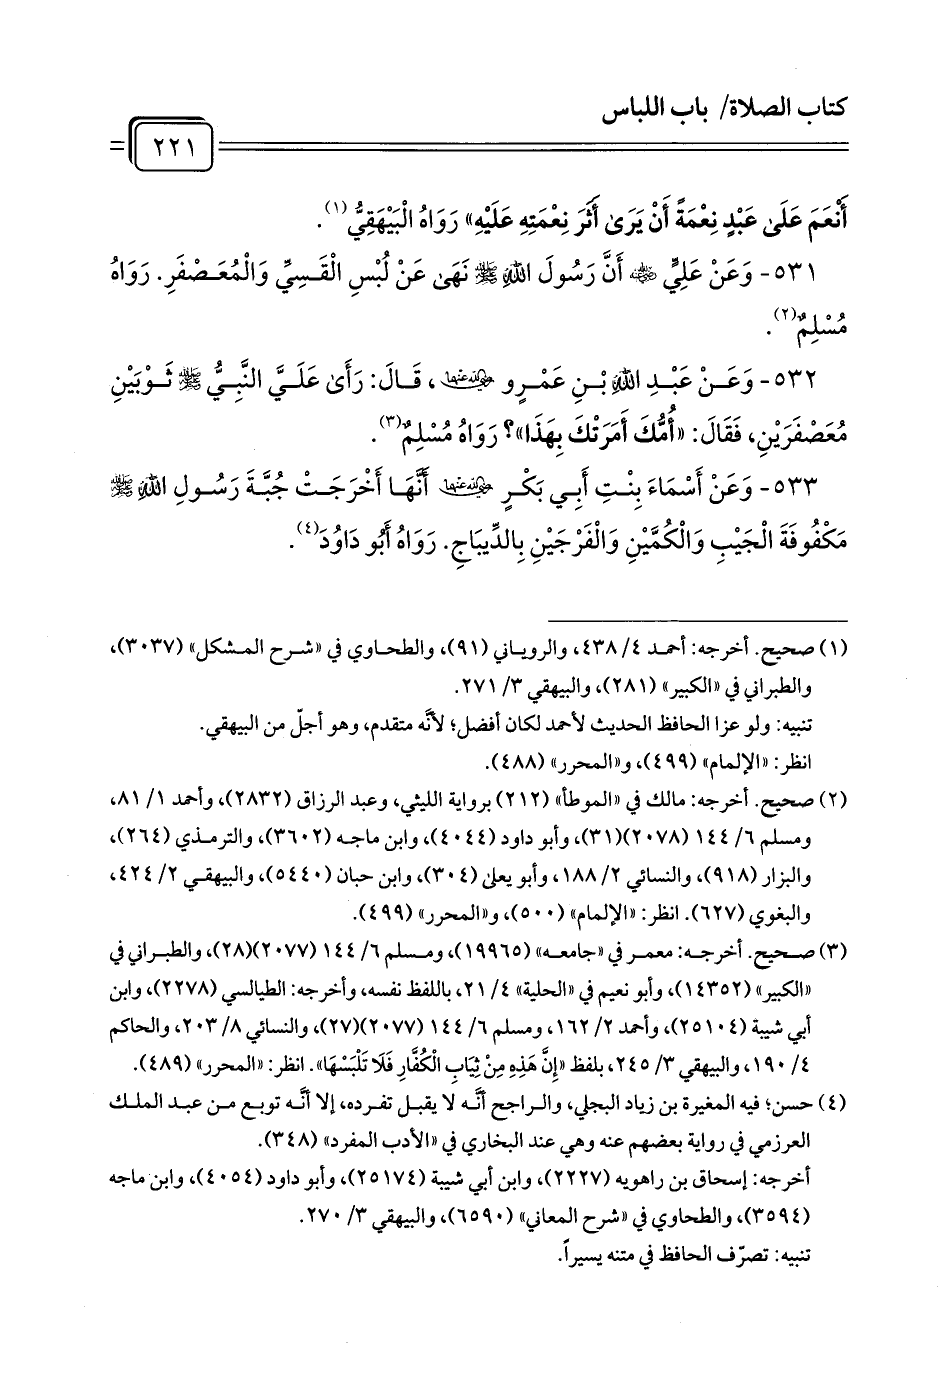 كتاب الصلاة/ باب اللباس
٢٢١
أَنْعَمَ عَلَىٰ عَبْدٍ نِعْمَةً أَنْ يَرَىٰ أَثَرَ نِعْمَتِهِ عَلَيْهِ» رَوَاهُ الْبَيْهَقِيُّ(١).
٥٣١- وَعَنْ عَلِيٍّ ﵁ أَنَّ رَسُولَ اللهِ ﷺ نَهَىٰ عَنْ لُبْسِ الْقَسِيِّ وَالْمُعَصْفَرِ. رَوَاهُ
مُسْلِمٌ(٢).
٥٣٢- وَعَـنْ عَبْـدِ اللهِ بْـنِ عَمْـرٍو ﵄، قَـالَ: رَأَىٰ عَلَـيَّ النَّبِـيُّ ﷺ ثَـوْبَيْنِ
مُعَصْفَرَيْنِ، فَقَالَ: «أُمُّكَ أَمَرَتْكَ بِهَذَا»؟ رَوَاهُ مُسْلِمٌ(٣).
٥٣٣- وَعَنْ أَسْمَاءَ بِنْتِ أَبِي بَكْرٍ ﵄ أَنَّهَا أَخْرَجَتْ جُبَّةَ رَسُولِ اللهِ ﷺ
مَكْفُوفَةَ الْجَيْبِ وَالْكُمَّيْنِ وَالْفَرْجَيْنِ بِالدِّيبَاجِ. رَوَاهُ أَبُو دَاوُدَ(٤).
(١) صحيح. أخرجه: أحمد ٤/ ٤٣٨، والروياني (٩١)، والطحاوي في «شرح المشكل» (٣٠٣٧)،
والطبراني في «الكبير» (٢٨١)، والبيهقي ٣/ ٢٧١.
تنبيه: ولو عزا الحافظ الحديث لأحمد لكان أفضل؛ لأنَّه متقدم، وهو أجلّ من البيهقي.
انظر: «الإلمام» (٤٩٩)، و«المحرر» (٤٨٨).
(٢) صحيح. أخرجه: مالك في «الموطأ» (٢١٢) برواية الليثي، وعبد الرزاق (٢٨٣٢)، وأحمد ١/ ٨١،
ومسلم ٦/ ١٤٤ (٢٠٧٨)(٣١)، وأبو داود (٤٠٤٤)، وابن ماجه (٣٦٠٢)، والترمذي (٢٦٤)،
والبزار (٩١٨)، والنسائي ٢/ ١٨٨، وأبو يعلىٰ (٣٠٤)، وابن حبان (٥٤٤٠)، والبيهقي ٢/ ٤٢٤،
والبغوي (٦٢٧). انظر: «الإلمام» (٥٠٠)، و«المحرر» (٤٩٩).
(٣) صحيح. أخرجه: معمر في «جامعه» (١٩٩٦٥)، ومسلم ٦/ ١٤٤ (٢٠٧٧)(٢٨)، والطبراني في
«الكبير» (١٤٣٥٢)، وأبو نعيم في «الحلية» ٤/ ٢١، باللفظ نفسه، وأخرجه: الطيالسي (٢٢٧٨)، وابن
أبي شيبة (٢٥١٠٤)، وأحمد ٢/ ١٦٢، ومسلم ٦/ ١٤٤ (٢٠٧٧)(٢٧)، والنسائي ٨/ ٢٠٣، والحاكم
٤/ ١٩٠، والبيهقي ٣/ ٢٤٥، بلفظ «إِنَّ هَذِهِ مِنْ ثِيَابِ الْكُفَّارِ فَلَا تَلْبَسْهَا». انظر: «المحرر» (٤٨٩).
(٤) حسن؛ فيه المغيرة بن زياد البجلي، والراجح أنَّه لا يقبل تفرده، إلا أنَّه توبع من عبد الملك
العرزمي في رواية بعضهم عنه وهي عند البخاري في «الأدب المفرد» (٣٤٨).
أخرجه: إسحاق بن راهويه (٢٢٢٧)، وابن أبي شيبة (٢٥١٧٤)، وأبو داود (٤٠٥٤)، وابن ماجه
(٣٥٩٤)، والطحاوي في «شرح المعاني» (٦٥٩٠)، والبيهقي ٣/ ٢٧٠.
تنبيه: تصرّف الحافظ في متنه يسيراً.